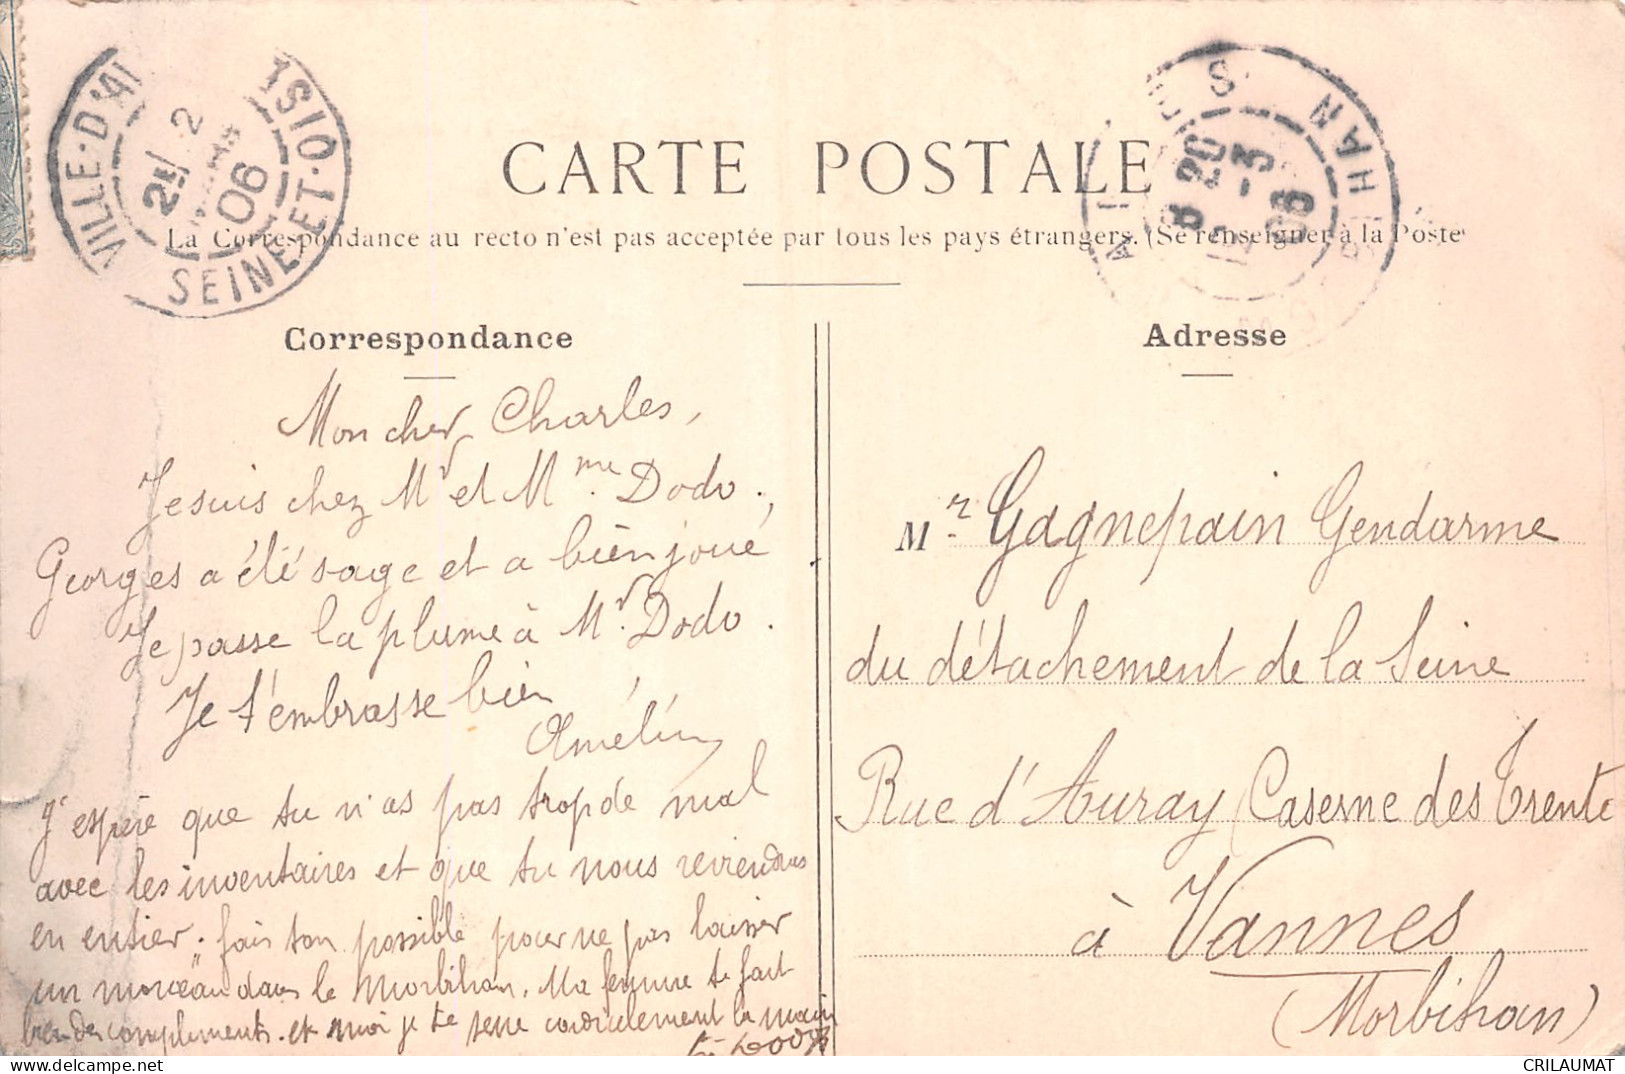 CARTE POSTALE
La Correspondance au recto n'est pas acceptée par tous les pays étrangers. (Se renseigner à la Poste
VILLE-D'A
SEINE-ET-OISE
2E/ 2
06
8 20
3 -3
06
Correspondance
Mon cher Charles,
Je suis chez Mr et Mme. Dodo.,
Georges a été sage et a bien joué
Je passe la plume à Mr. Dodo.
Je t'embrasse bien
J'espère que tu n'as pas trop de mal
avec les inventaires et que tu nous reviendras
en entier. fais ton possible pour ne pas laisser
un morceau dans le Morbihan. Ma femme te fait
bien des compliments. et moi je te serre cordialement la main
Dodo
Adresse
Mr. Gagnepain Gendarme
du détachement de la Seine
Rue d'Auray Caserne des Trente
à Vannes
(Morbihan)
CRILAUMAT